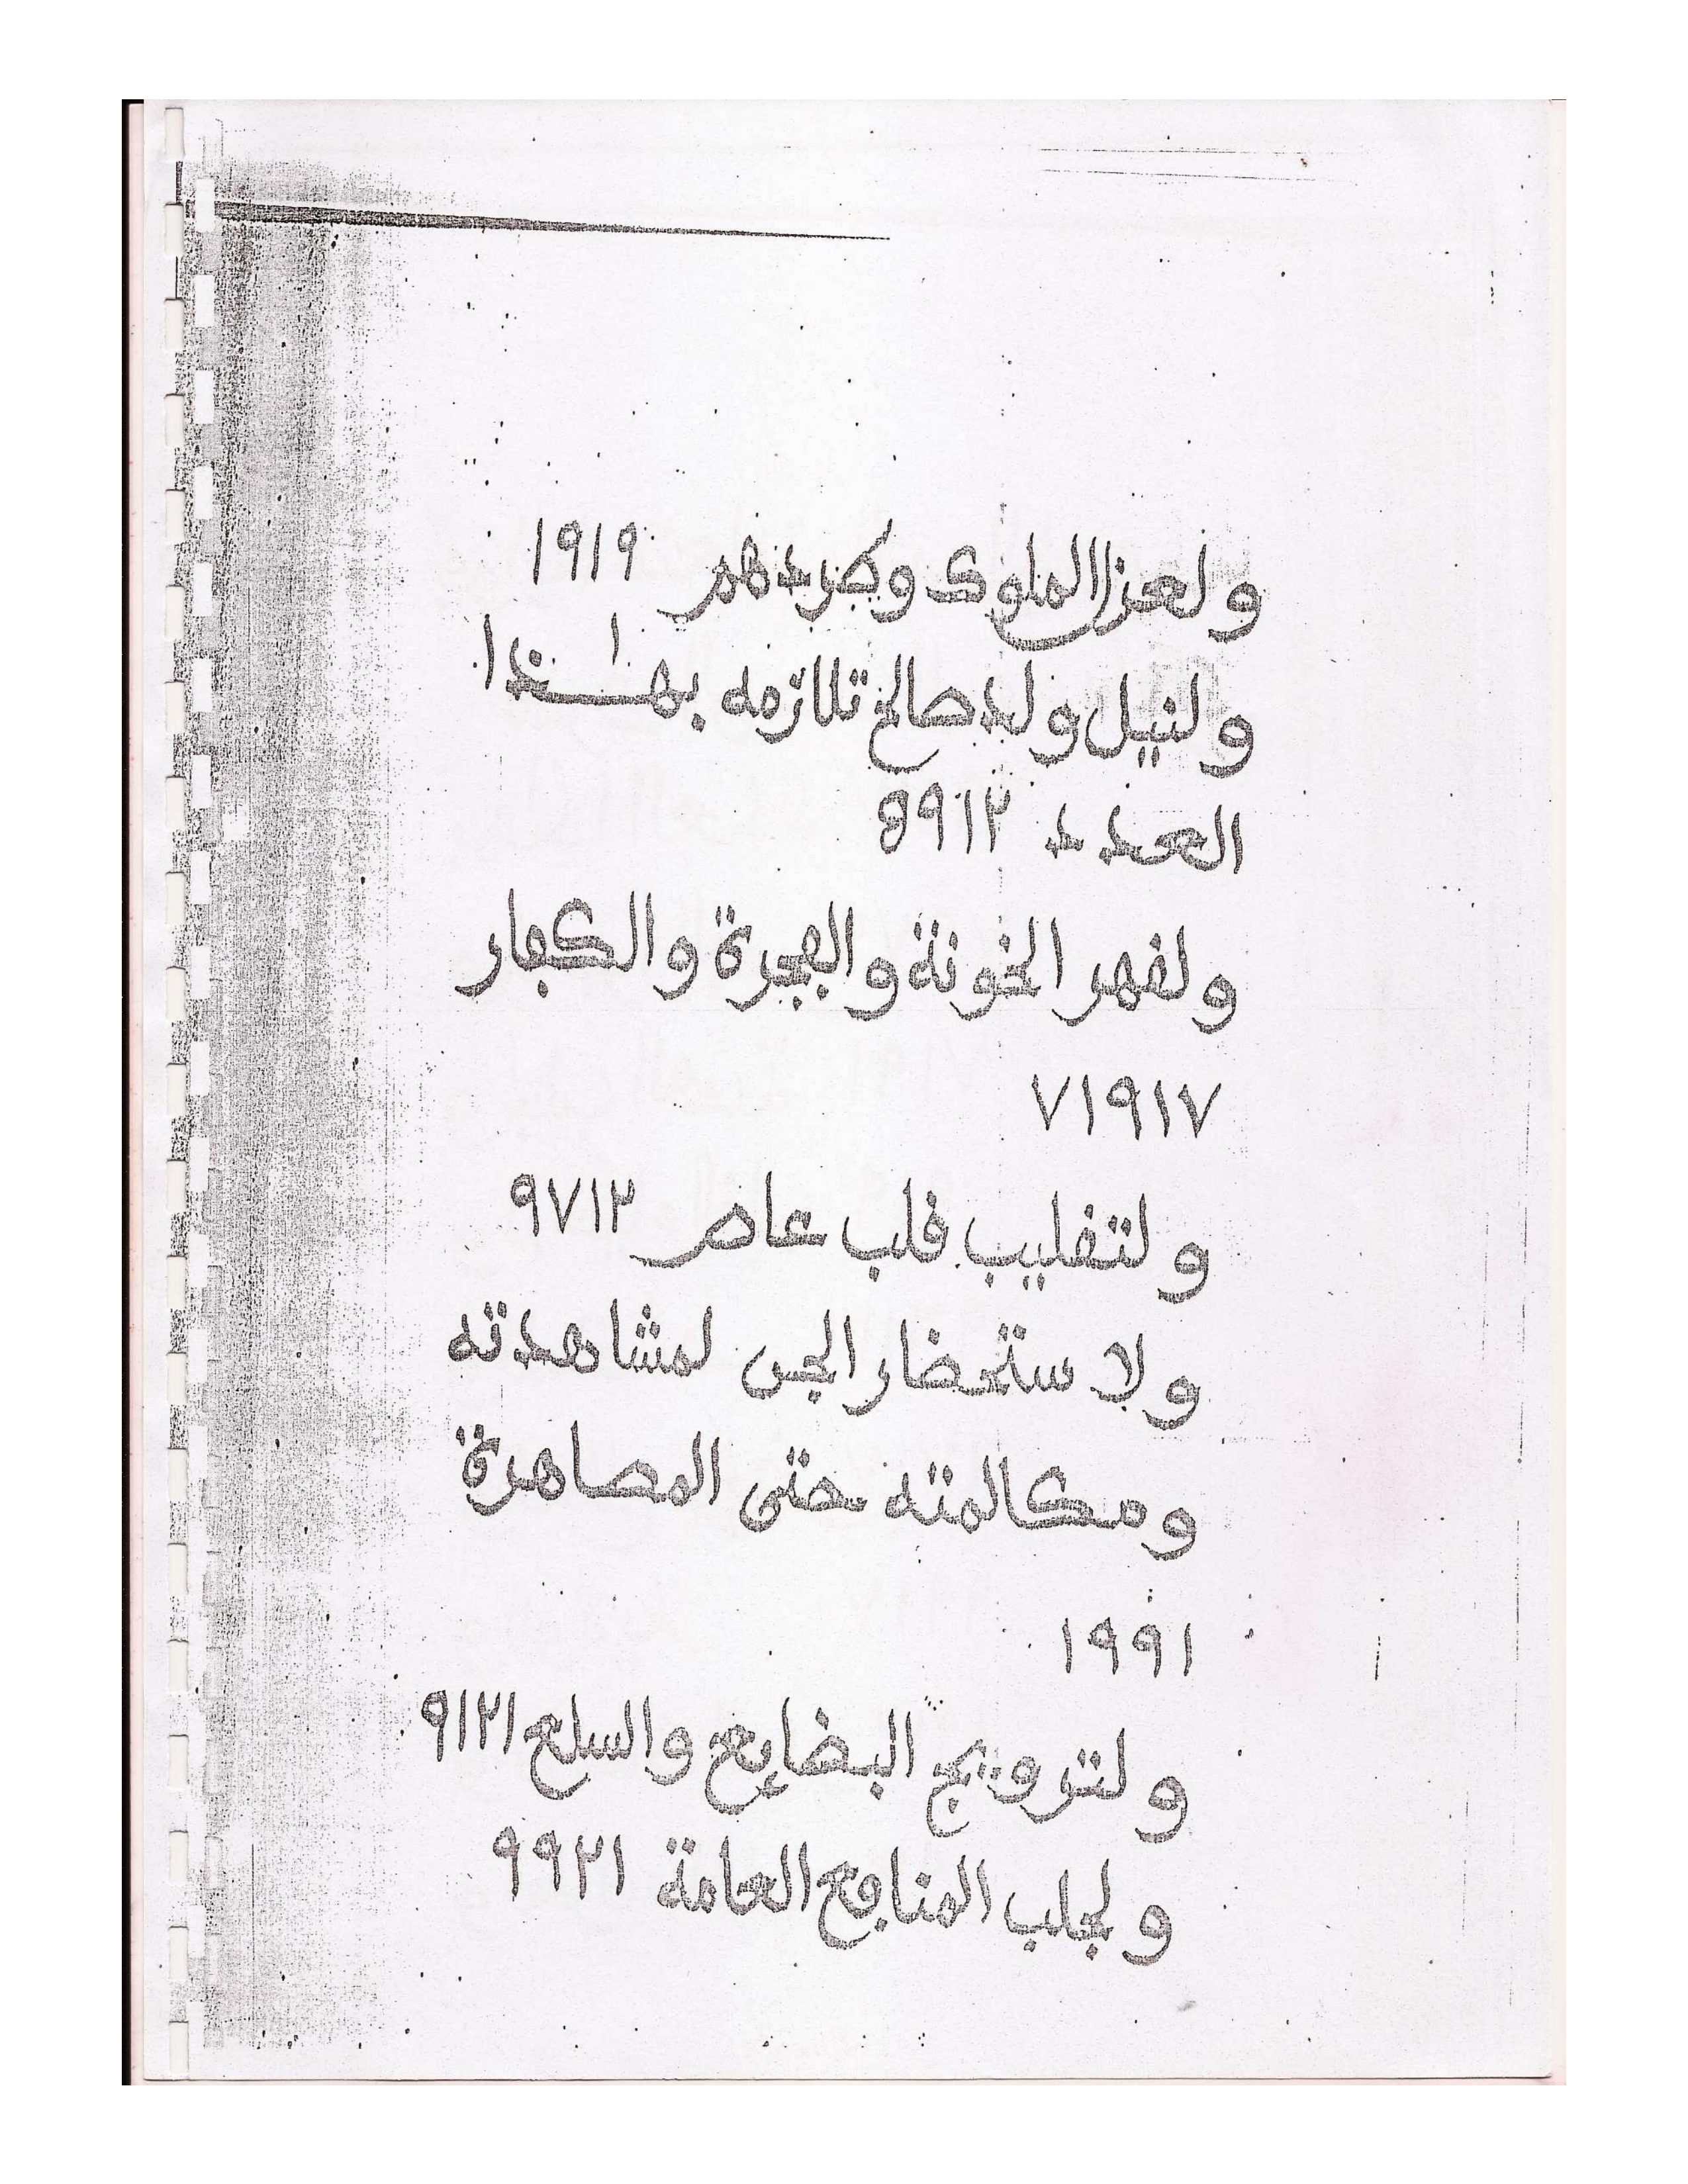 ولعزل الملوك وطردهم ١٩١٩
ولنيل ولد صالح تلازمه بهـٰـذا
العدد ٥٩١٢
ولفهر الخونة والفجرة والكفار
٧١٩١٧
ولتفليب فلب عاص ٩٧١٢
ولاستحضار الجن لمشاهدته
ومكالمته حتى المصاهرة
١٩٩١
ولترويج البضايع والسلع ٩١٢١
ولجلب المنافع العامة ٩٩٢١